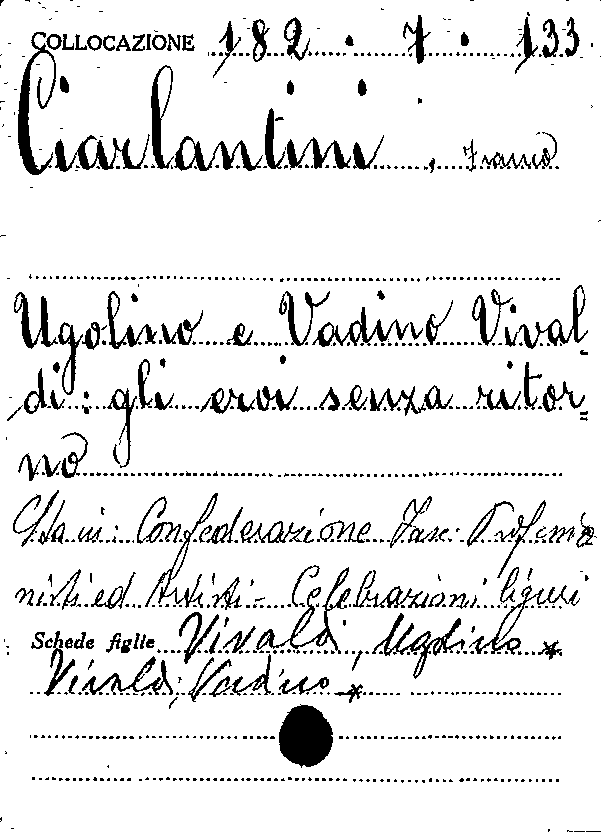 COLLOCAZIONE 182 · 7 · 133
Ciarlantini, Franco
Ugolino e Vadino Vival-
di: gli eroi senza ritor-
no
Sta in: Confederazione Fasc. Professio
nisti ed Artisti - Celebrazioni liguri
Schede figlie Vivaldi, Ugolino *
Vivaldi, Vadino *